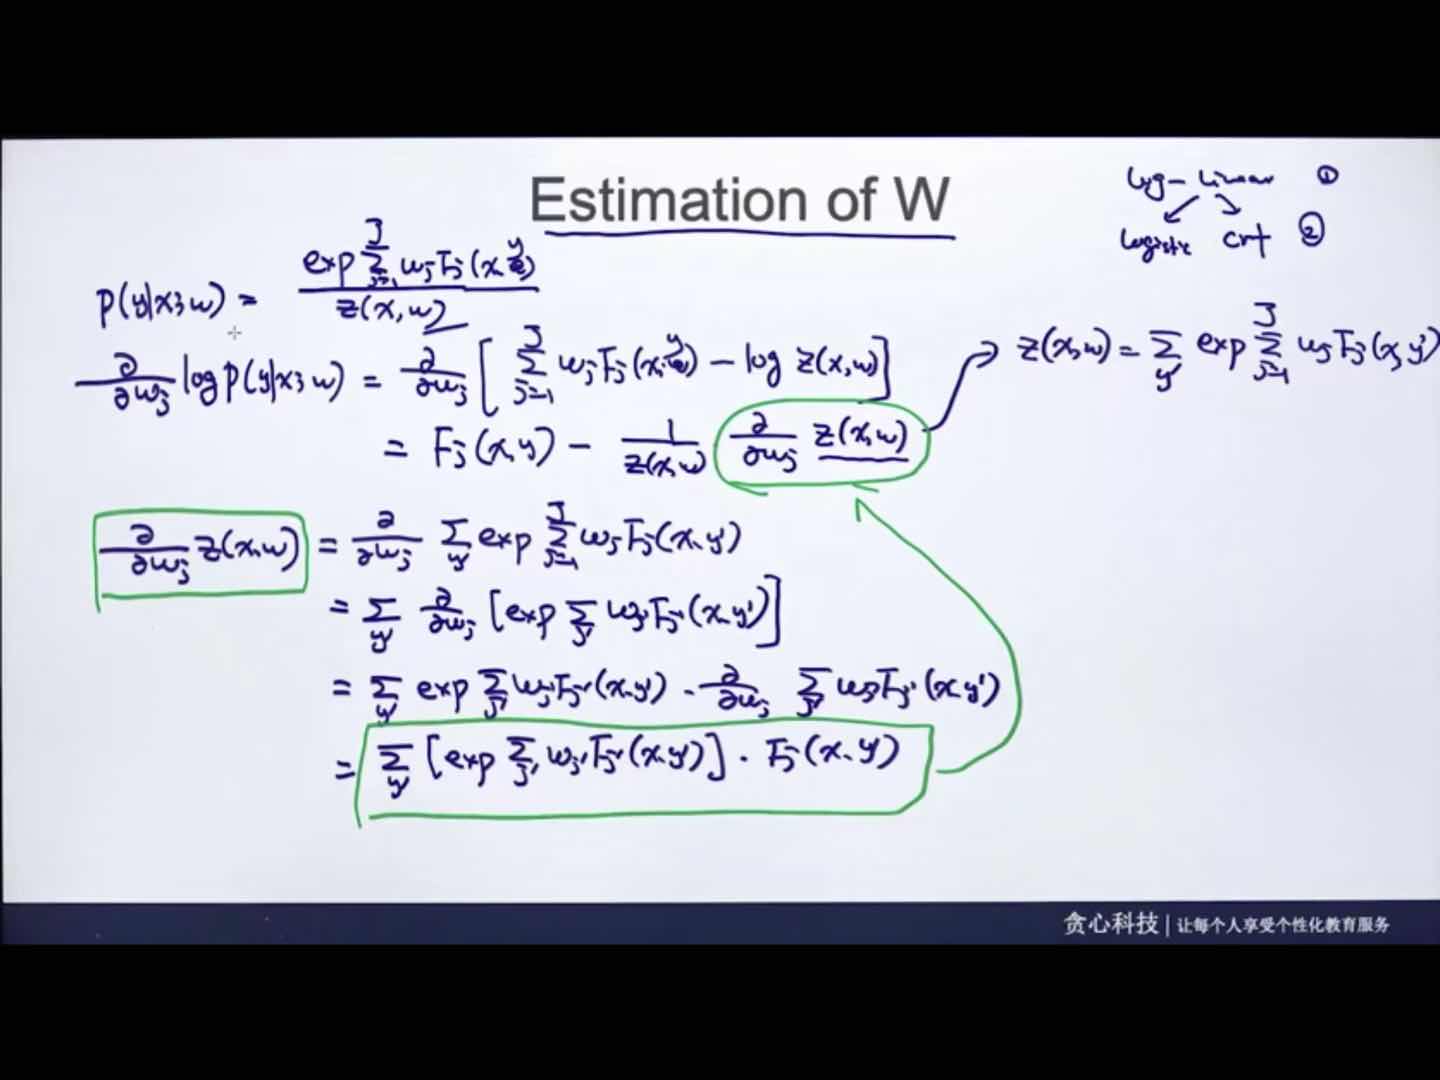 Estimation of W
log-linear ①
logistic crf ②
p(y|x;w) = exp Σ_{j=1}^{J} w_j F_j(x,y) / z(x,w)
∂/∂w_j log p(y|x;w) = ∂/∂w_j [ Σ_{j=1}^{J} w_j F_j(x,y) − log z(x,w) ]
z(x,w) = Σ_{y'} exp Σ_{j=1}^{J} w_j F_j(x,y')
= F_j(x,y) − 1/z(x,w) ∂/∂w_j z(x,w)
∂/∂w_j z(x,w) = ∂/∂w_j Σ_{y'} exp Σ_{j=1}^{J} w_j F_j(x,y')
= Σ_{y'} ∂/∂w_j [exp Σ_{j'} w_{j'} F_{j'}(x,y')]
= Σ_{y'} exp Σ_{j'} w_{j'} F_{j'}(x,y') · ∂/∂w_j Σ_{j'} w_{j'} F_{j'}(x,y')
= Σ_{y'} [exp Σ_{j'} w_{j'} F_{j'}(x,y')] · F_j(x,y')
贪心科技 | 让每个人享受个性化教育服务